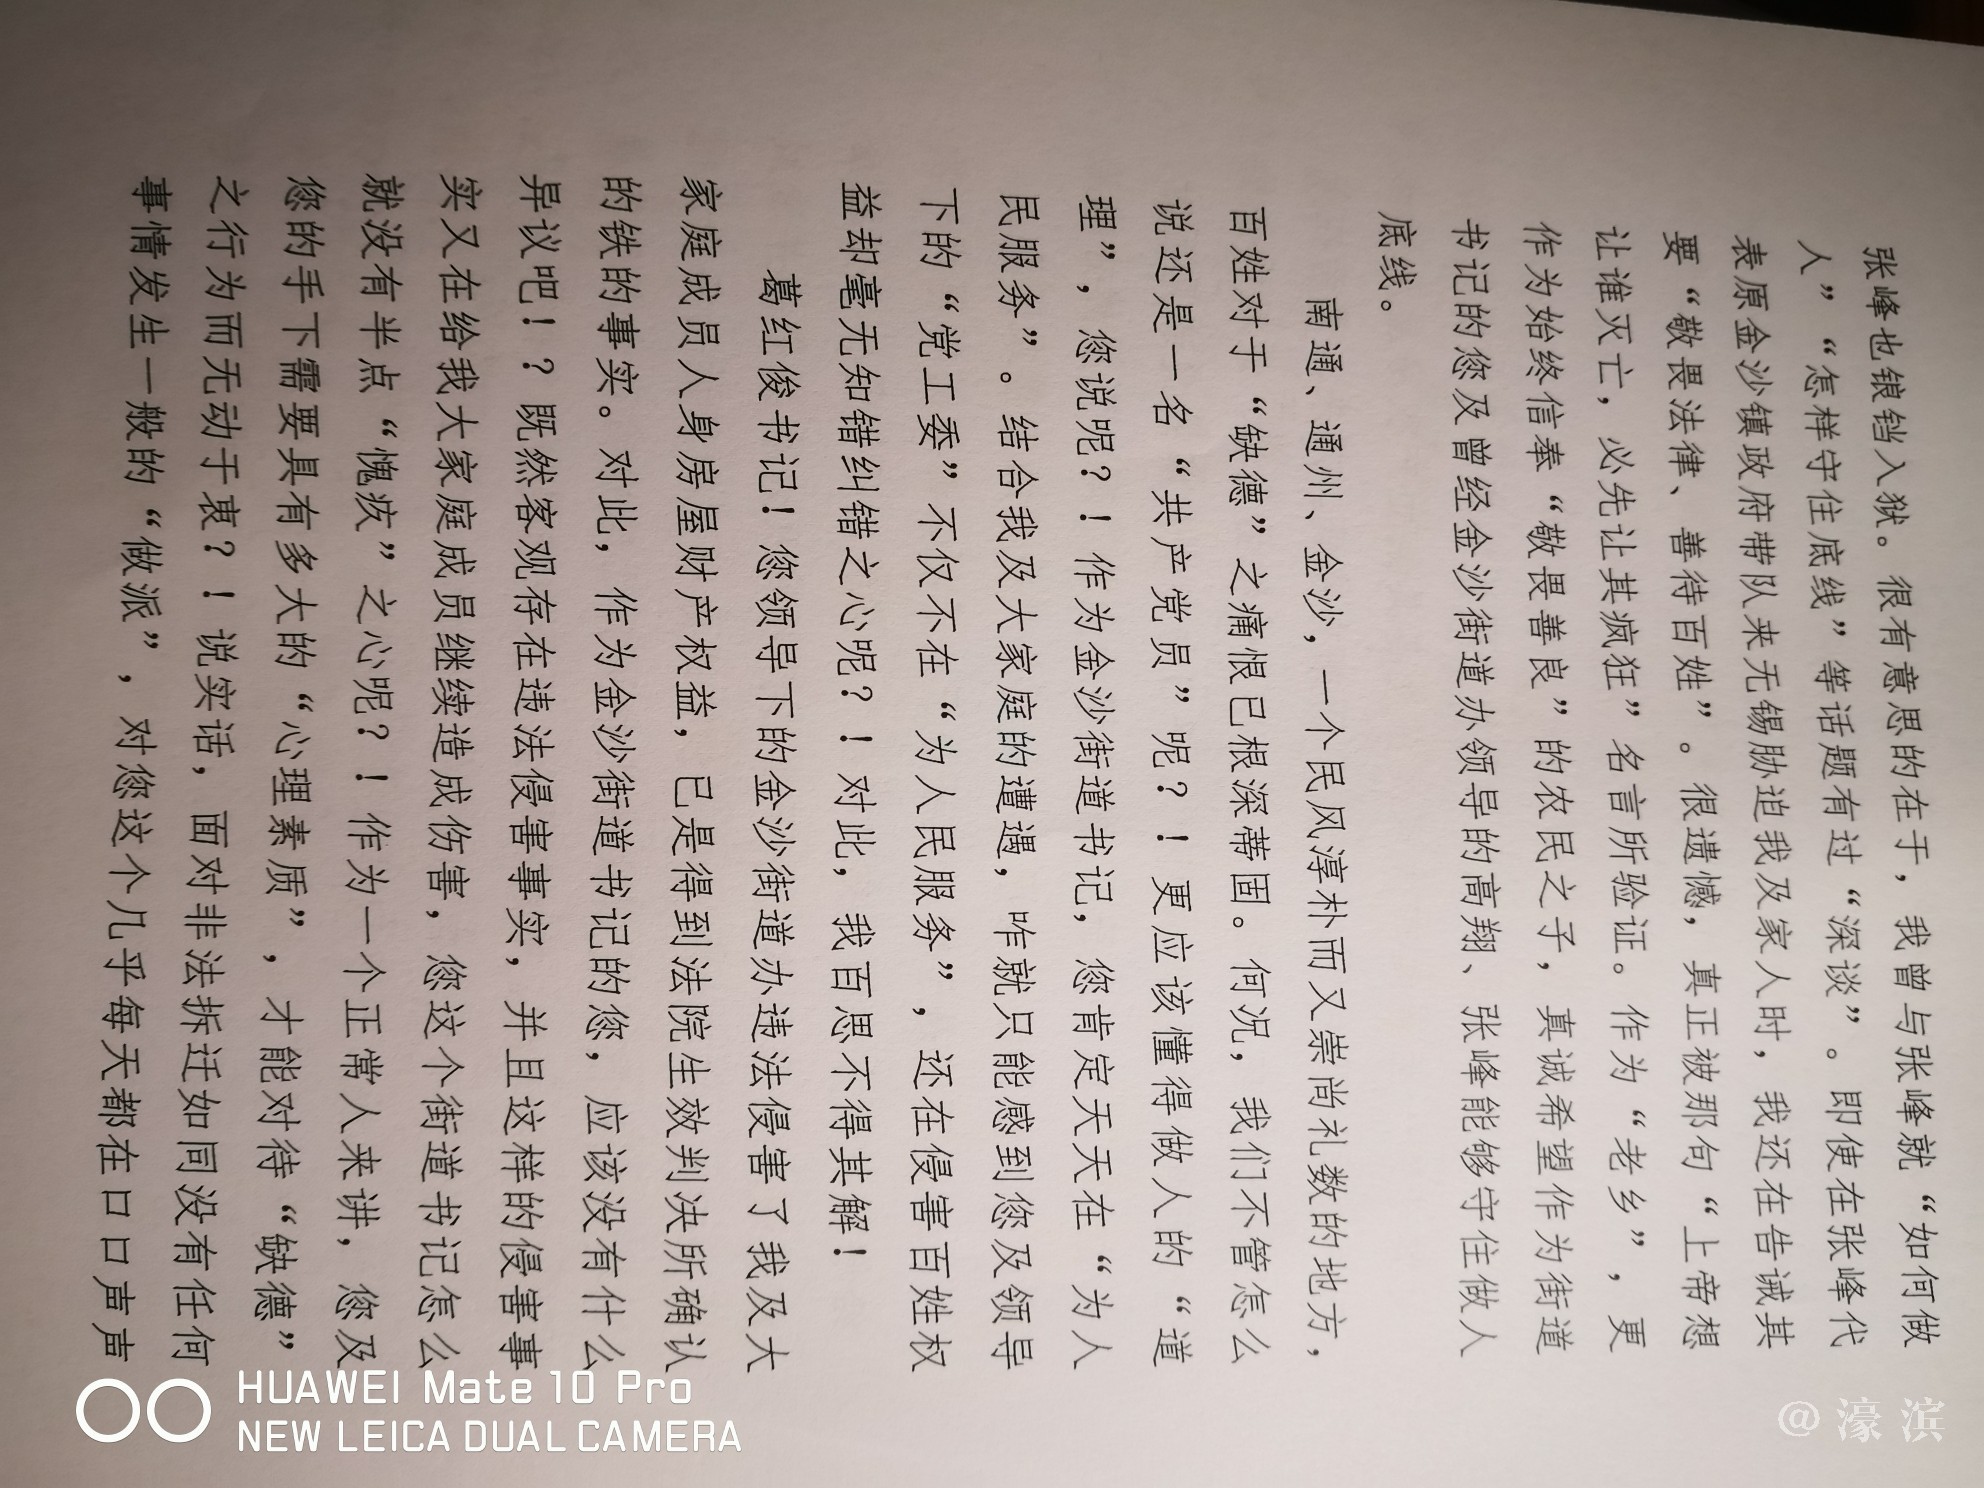 张峰也锒铛入狱。很有意思的在于，我曾与张峰就“如何做
人”“怎样守住底线”等话题有过“深谈”。即使在张峰代
表原金沙镇政府带队来无锡胁迫我及家人时，我还在告诫其
要“敬畏法律、善待百姓”。很遗憾，真正被那句“上帝想
让谁灭亡，必先让其疯狂”名言所验证。作为“老乡”，更
作为始终信奉“敬畏善良”的农民之子，真诚希望作为街道
书记的您及曾经金沙街道办领导的高翔、张峰能够守住做人
底线。
南通、通州、金沙，一个民风淳朴而又崇尚礼数的地方，
百姓对于“缺德”之痛恨已根深蒂固。何况，我们不管怎么
说还是一名“共产党员”呢？！更应该懂得做人的“道
理”，您说呢？！作为金沙街道书记，您肯定天天在“为人
民服务”。结合我及大家庭的遭遇，咋就只能感到您及领导
下的“党工委”不仅不在“为人民服务”，还在侵害百姓权
益却毫无知错纠错之心呢？！对此，我百思不得其解！
葛红俊书记！您领导下的金沙街道办违法侵害了我及大
家庭成员人身房屋财产权益，已是得到法院生效判决所确认
的铁的事实。对此，作为金沙街道书记的您，应该没有什么
异议吧！？既然客观存在违法侵害事实，并且这样的侵害事
实又在给我大家庭成员继续造成伤害，您这个街道书记怎么
就没有半点“愧疚”之心呢？！作为一个正常人来讲，您及
您的手下需要具有多大的“心理素质”，才能对待“缺德”
之行为而无动于衷？！说实话，面对非法拆迁如同没有任何
事情发生一般的“做派”，对您这个几乎每天都在口口声声
HUAWEI Mate 10 Pro
NEW LEICA DUAL CAMERA
@濠滨